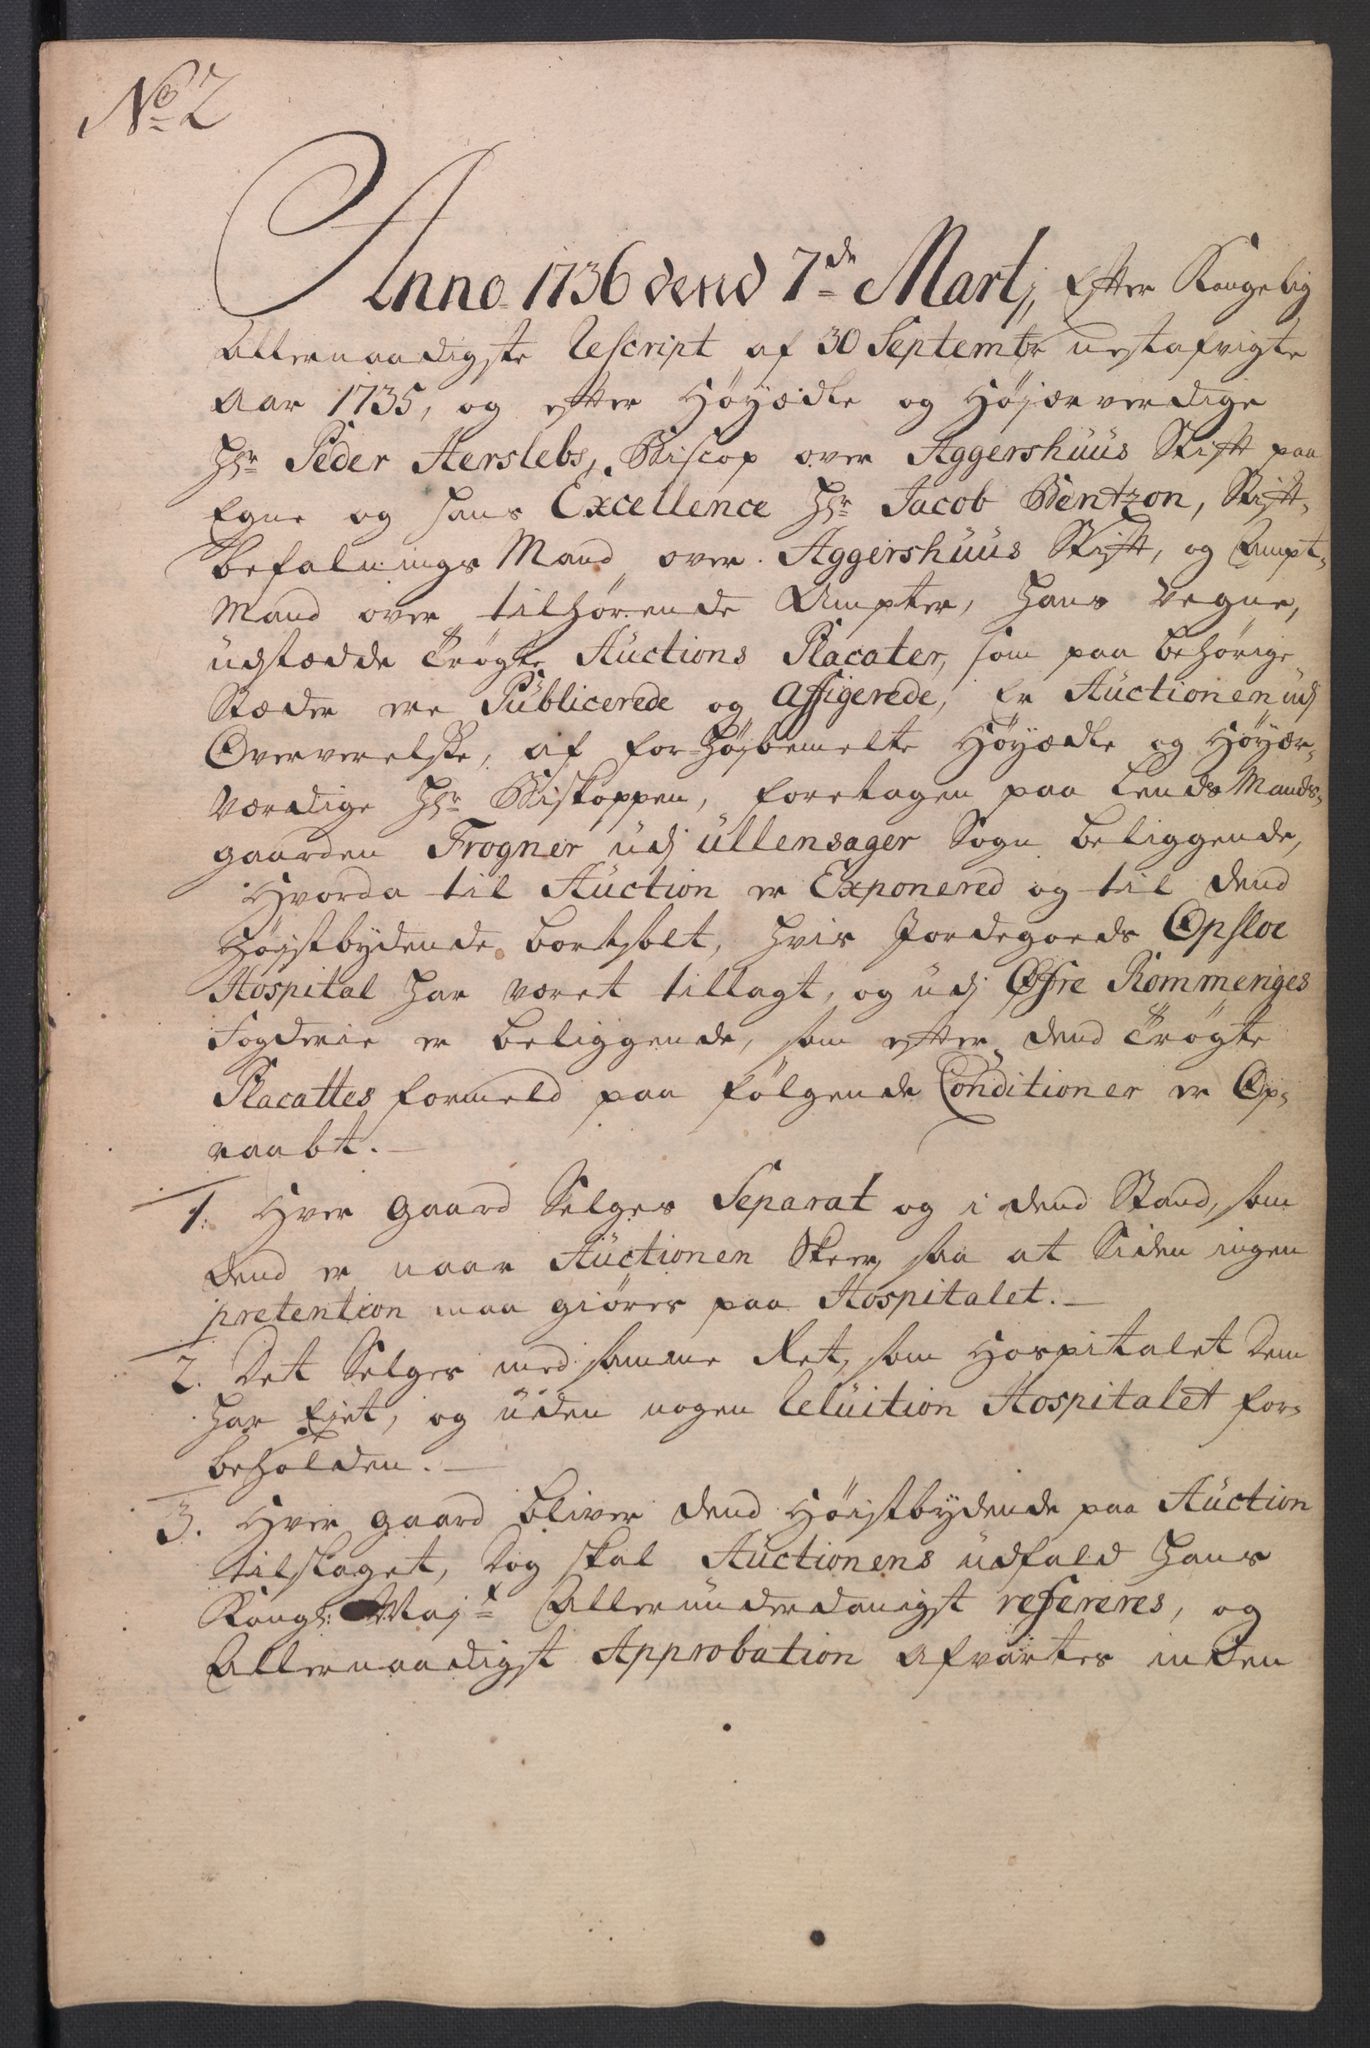 No 2
Anno 1736 dend 7de Martj, Efter Kongelig
Allernaadigste Rescript af 30 Septembr nestafvigte
Aar 1735, og efter Høyædle og Højærverdige
Hr Peder Herslebs, Biscop over Aggershuus Stift paa
Egne og hans Excellence Hr Jacob Bentzon, Stift-
befalnings Mand over Aggershuus Stift, og Ampt-
Mand over tilhørende Ampter, Hans Vegne,
udstædde trögte Auctions Placater, som paa behørige
Stæder ere Publicerede og Affigerede, Er Auctionen udj
Oververelse, af for-Højbemelte Høyædle og Høyær-
værdige Hr Biskoppen, foretagen paa LendsMands-
gaarden Frogner udj Ullensager Sogn beliggende,
Hvorda til Auction er Exponered og til dend
Høistbydende bortsolt, hvis Jordegoeds Opsloe
Hospital har været tillagt, og udj Øfre Rommeriges
Fogderie er beliggende, som efter dend trögte
Placattes formeld paa følgende Conditioner er Op-
raabt.
1. Hver gaard Selges Separat og i dend Stand, som
dend er naar Auctionen Skeer, saa at Siden ingen
pretention maa giöres paa Hospitalet.
2. Det Selges med samme Ret, som Hospitalet dem
har Ejet, og uden nogen Reluition Hospitalet for-
beholden.
3. Hver gaard bliver dend Høistbydende paa Auction
tilslaget, dog skal Auctionens udfald hans
Kongl: Majt Allerunderdanigst refereres, og
Allernaadigst Approbation afvartes inden